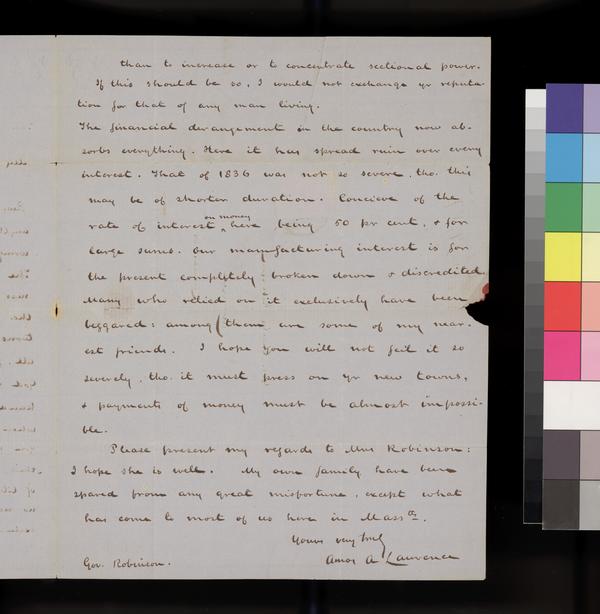 than to increase or to concentrate sectional power.
If this should be so, I would not exchange yr reputa-
tion for that of any man living.
The financial derangement in the country now ab-
sorbs everything. Here it has spread ruin over every
interest. That of 1836 was not so severe, tho. this
may be of shorter duration. Concieve of the
rate of interest on money here being 50 pr cent, & for
large sums. Our manufacturing interest is for
the present completely broken down & discredited.
Many who relied on it exclusively have been
beggared: among them are some of my near-
est friends. I hope you will not feel it so
severely, tho. it must press on yr new towns,
& payments of money must be almost impossi-
ble.
Please present my regards to Mrs Robinson:
I hope she is well. My own family have been
spared from any great misfortune, except what
has come to most of us here in Massts.
Yours very truly
Amos A Lawrence
Gov. Robinson.